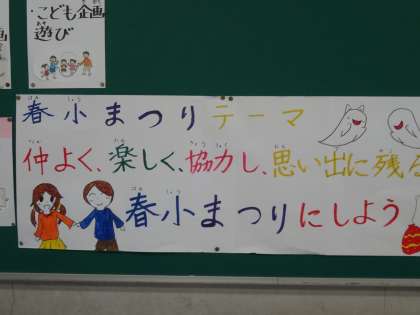 ・こども企画
遊び
春小まつりテーマ
仲よく、楽しく、協力し、思い出に残る
春小まつりにしよう